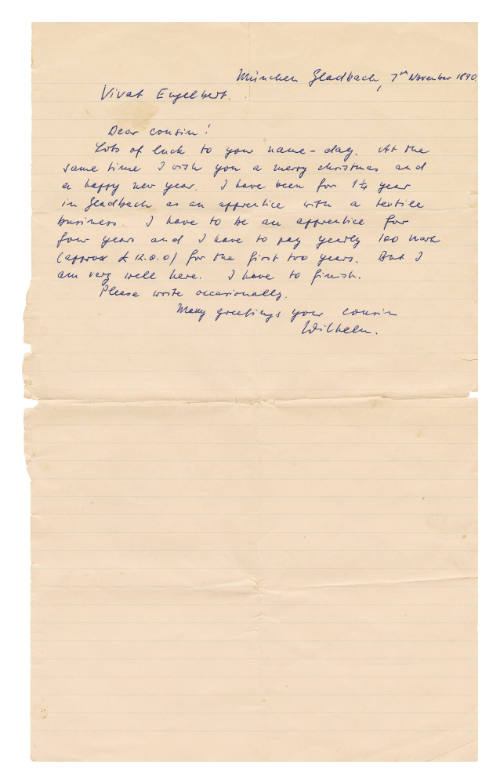 München Gladbach, 7th November 1890
Vivat Engelbert.
Dear cousin!
Lots of luck to your name-day. At the
same time I wish you a merry christmas and
a happy new year. I have been for 1¼ year
in Gladbach as an apprentice with a textile
business. I have to be an apprentice for
four years and I have to pay yearly 100 mark
(approx £ 12.0.0) for the first two years. But I
am very well here. I have to finish.
Please write occasionally.
Many greetings your cousin
Wilhelm.